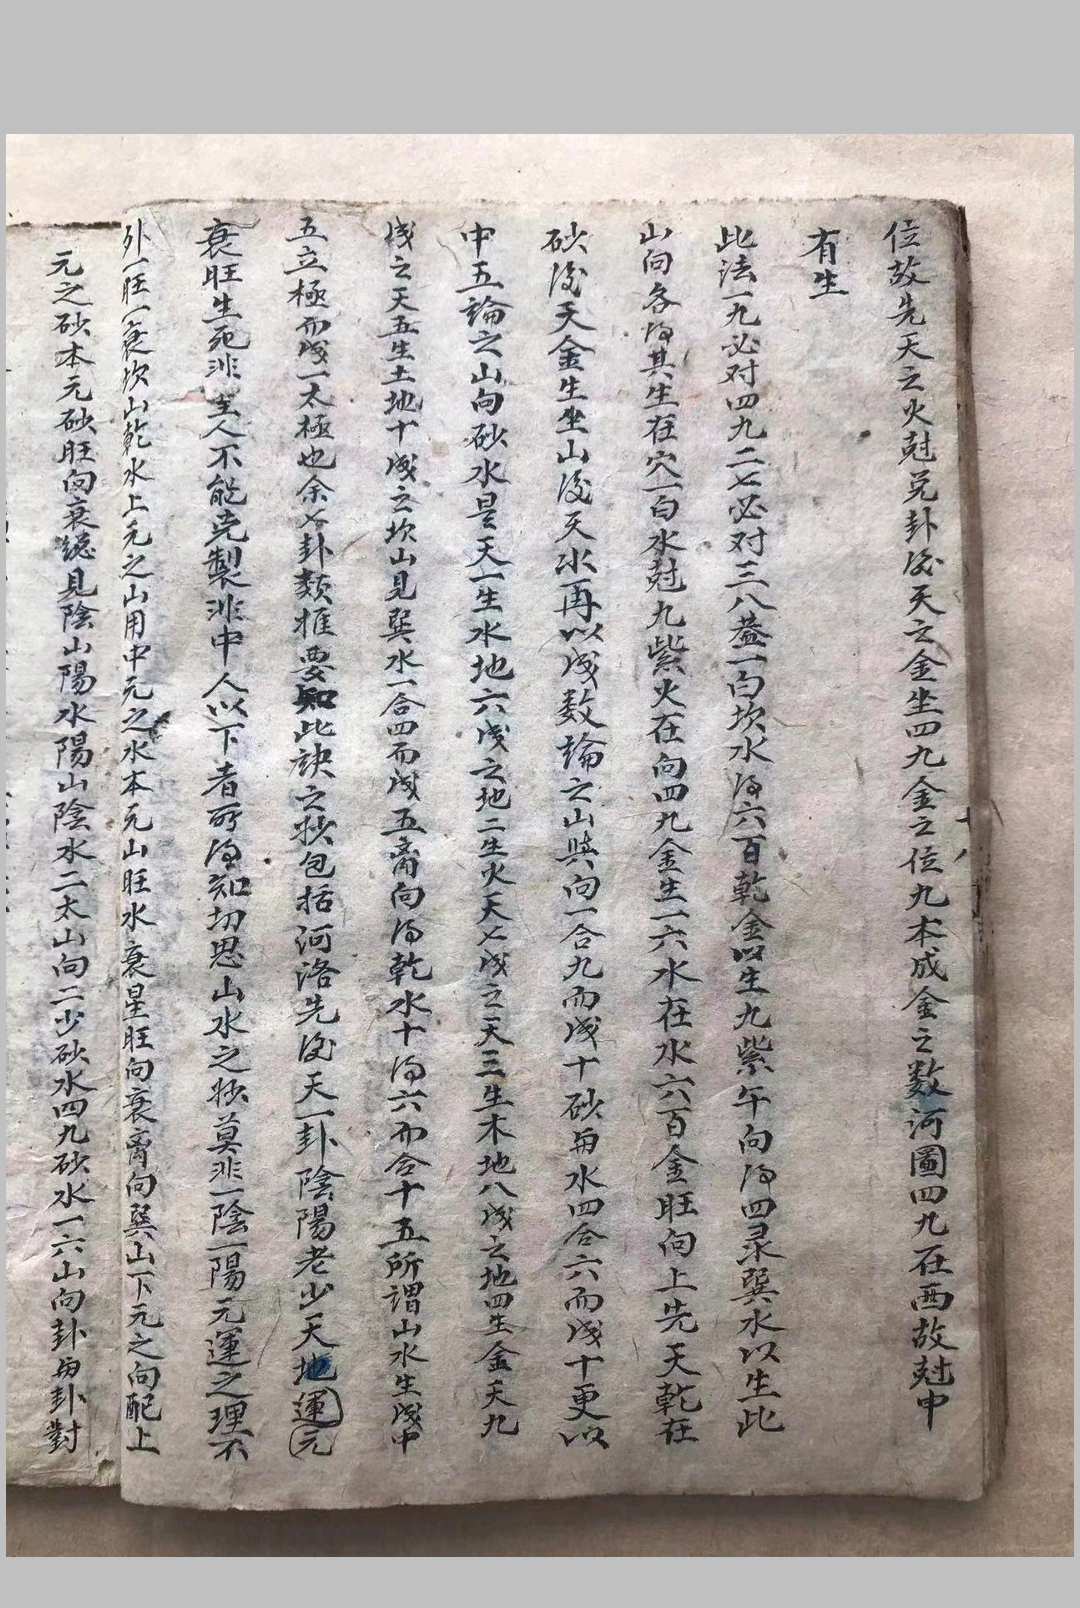 位故先天之火尅兑卦後天之金坐四九金之位九本成金之數河圖四九在西故尅中
有生
此法一九必对四九二七必对三八蓋一白坎水得六百乾金以生九紫午向得四录巽水以生此
山向各得其生在穴一白水尅九紫火在向四九金生一六水在水六百金旺向上先天乾在
砂後天金生坐山後天水再以成数論之山與向一合九而成十砂與水四合六而成十更以
中五論之山向砂水是天一生水地六成之地二生火天七成之天三生木地八成之地四生金天九
成之天五生土地十成之坎山見巽水一合四而成五离向得乾水十得六而合十五所謂山水生成中
五立極而成一太極也余七卦類推要知此訣之妙包括河洛先後天一卦陰陽老少天地運元
衰旺生死非圣人不能完製非中人以下者所得知切思山水之妙莫非一陰一陽元運之理不
外一旺一衰坎山乾水上元之山用中元之水本元山旺水衰星旺向衰离向巽山下元之向配上
元之砂本元砂旺向衰總見陰山陽水陽山陰水二太山向二少砂水四九砂水一六山向卦與卦對